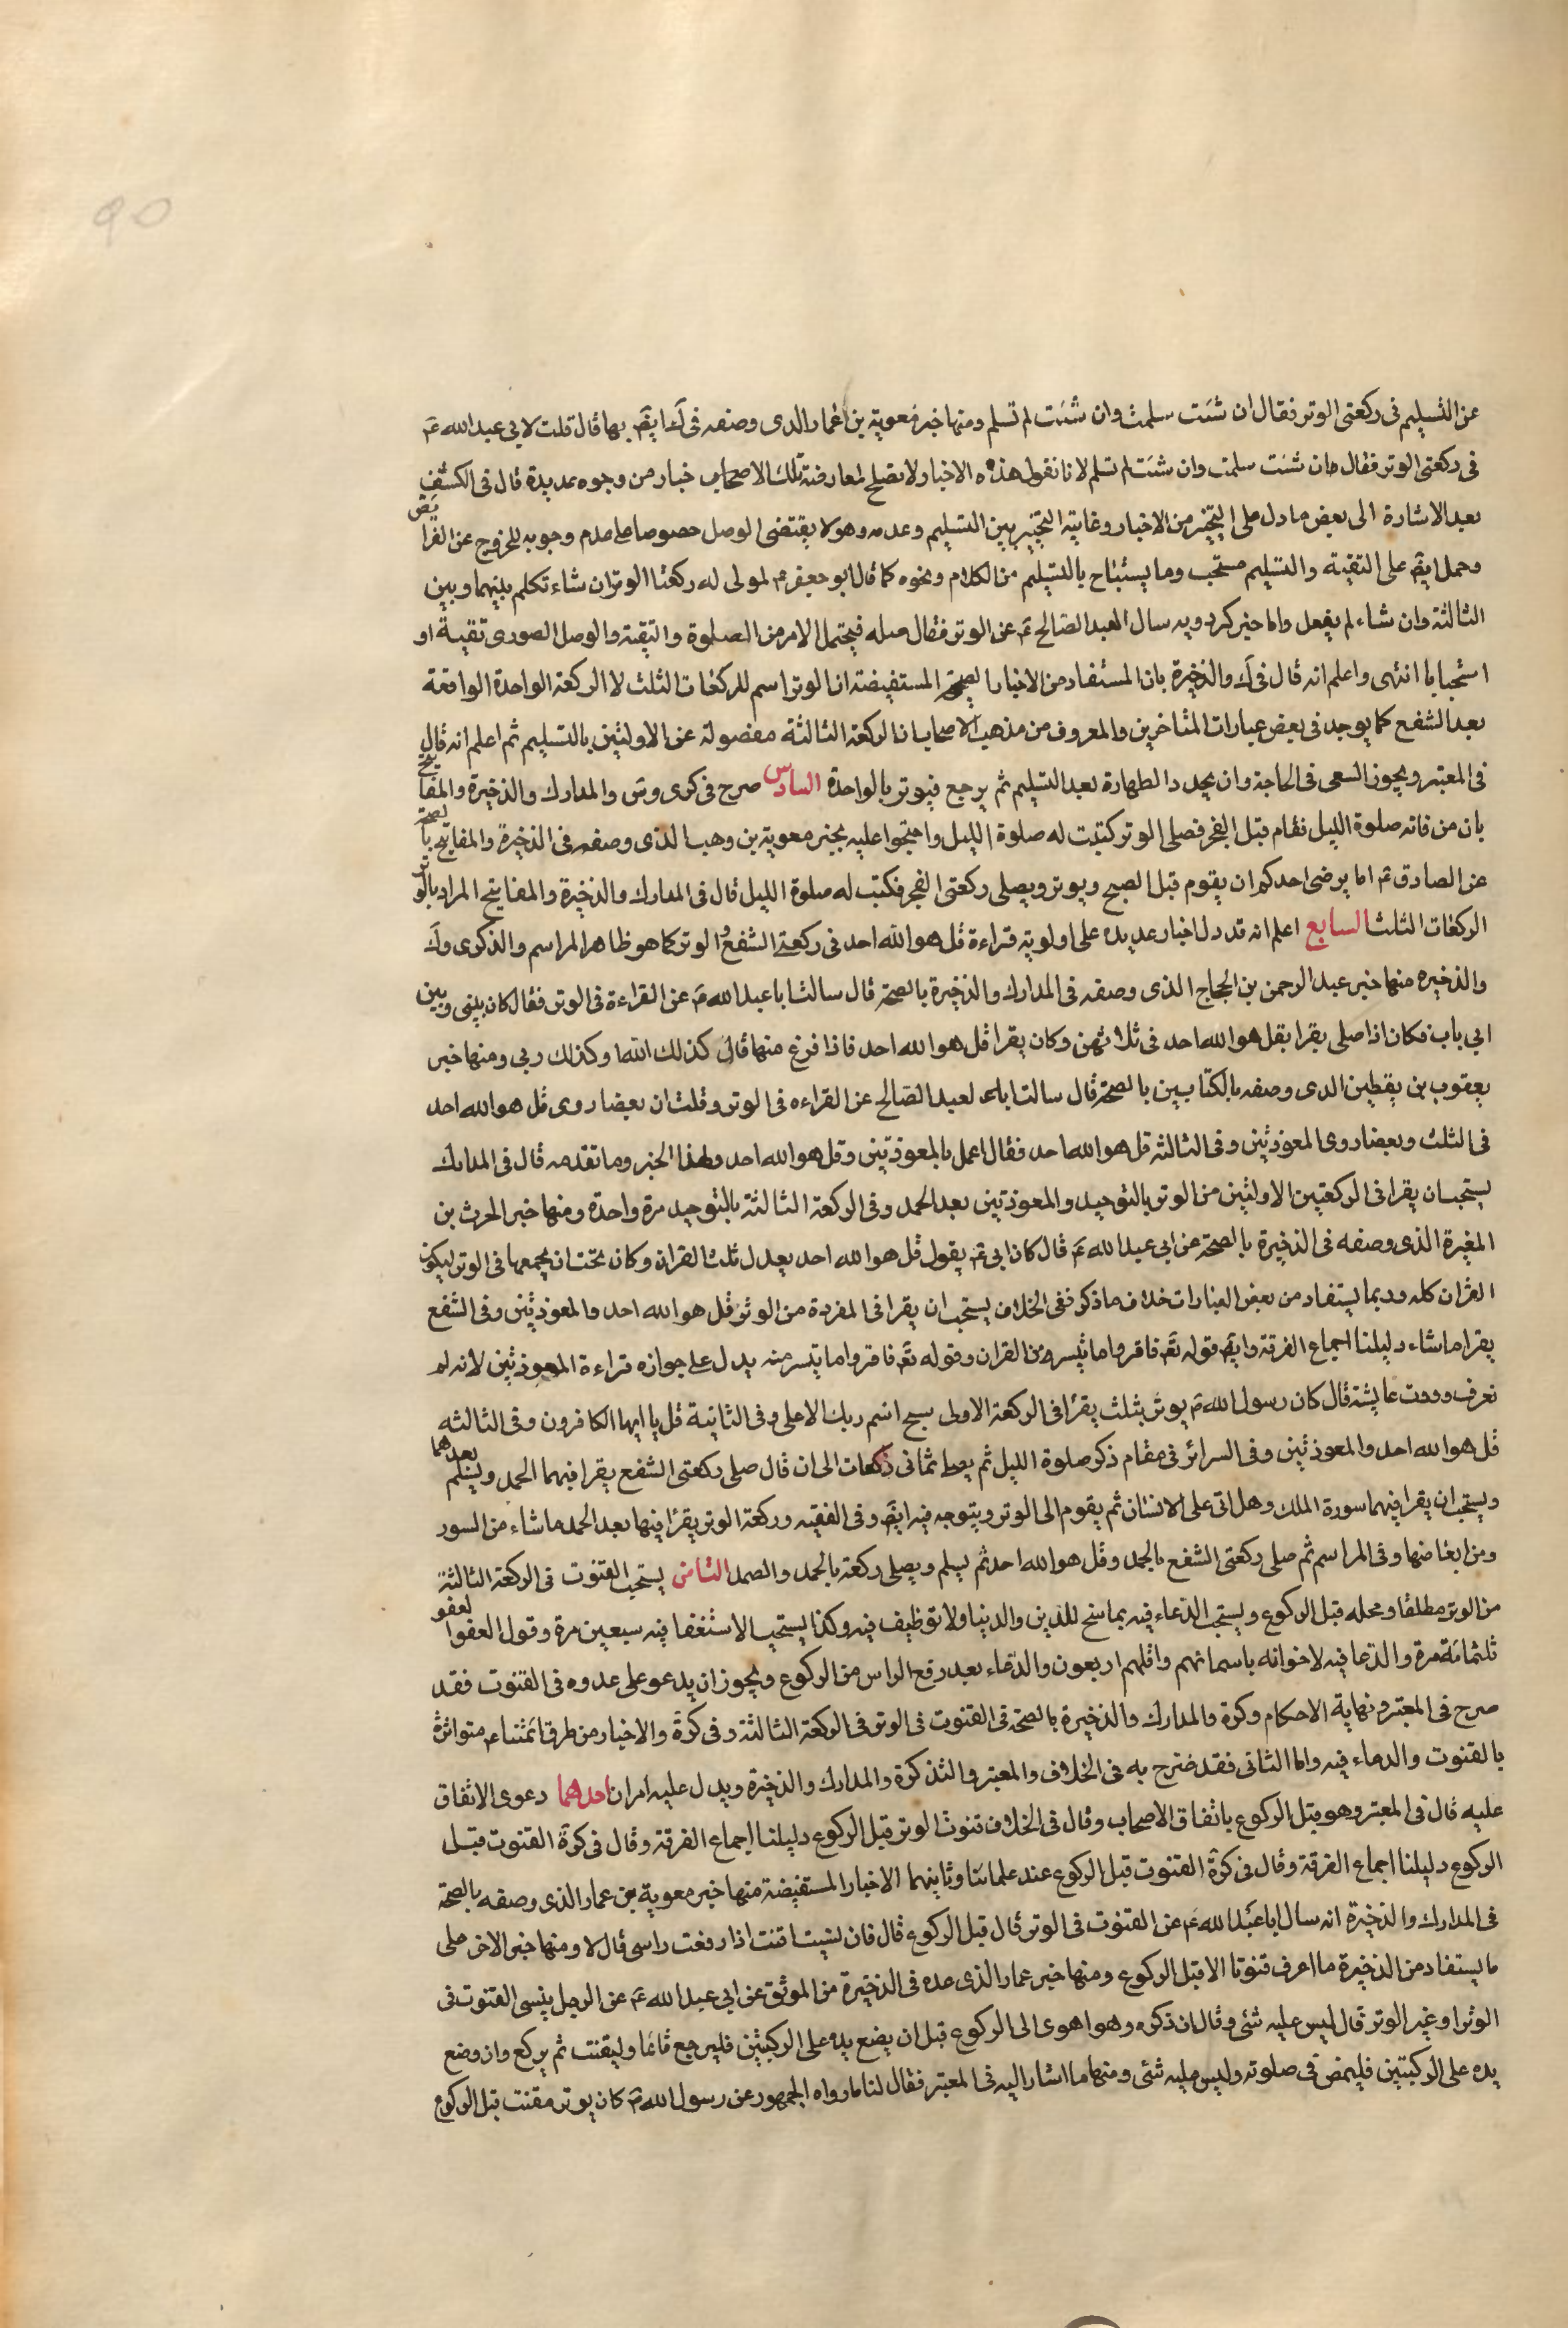 90
عن التسليم فى ركعتى الوتر فقال ان شئت سلمت وان شئت لم تسلم ومنها خبر معوية بن عمار الذى وصفه فى ك ايضً بها قال قلت لابي عبد الله عَ
فى ركعتى الوتر فقال ان شئت سلمت وان شئت لم تسلم لانا نقول هذه الاخبار لا تصلح لمعارضة تلك الاخبار من وجوه عديدة قال فى الكشف
بعد الاشارة الى بعض ما دل على التخيير من الاخبار وغاية التخيير بين التسليم وعدمه وهو لا يقتضى الوصل خصوصا على عدم وجوبه للخروج عن الفرايض
وحمل ايضً على التقية والتسليم مستحب وما يستباح بالتسليم من الكلام ونحوه كما قال ابو جعفر عَ لمولى له ركعتا الوتر ان شاء تكلم بينهما وبين
الثالثة وان شاء لم يفعل واما خبر كردويه سال العبد الصالح عَ عن الوتر فقال صله فيحتمل الامر من الصلوة والتقية والوصل الصورى تقية او
استحبابا انتهى واعلم انه قال فى ك والذخيرة بان المستفاد من الاخبار الصحيحة المستفيضة ان الوتر اسم للركعات الثلث لا الركعة الواحدة الواقعة
بعد الشفع كما يوجد فى بعض عبارات المتاخرين والمعروف من مذهب الاصحاب ان الركعة الثالثة مفصولة عن الاولتين بالتسليم ثم اعلم انه قال
فى المعتبر ويجوز السعى فى الحاجة وان يجدد الطهارة بعد التسليم ثم يرجع فيوتر بالواحدة السادس صرح فى كرى وس والمدارك والذخيرة والمفاتيح
بان من فاته صلوة الليل فقام قبل الفجر فصلى الوتر كتبت له صلوة الليل واحتجوا عليه بخبر معوية بن وهب الذى وصفه فى الذخيرة والمفاتيح بالصحة
عن الصادق عَ اما يرضى احدكم ان يقوم قبل الصبح ويوتر ويصلى ركعتى الفجر فكتب له صلوة الليل قال فى المدارك والذخيرة والمفاتيح المراد بالوتر
الركعات الثلث السابع اعلم انه قد دل اخبار عديده على اولوية قراءة قل هو الله احد فى ركعتى الشفع والوتر كما هو ظاهر المراسم والذكرى وك
والذخيره منها خبر عبد الرحمن بن الحجاج الذى وصفه فى المدارك والذخيرة بالصحة قال سالت ابا عبد الله عَ عن القراءة فى الوتر فقال كان بينى وبين
ابي باب فكان اذا صلى يقرا بقل هو الله احد فى ثلاثهن وكان يقرا قل هو الله احد فاذا فرغ منها قال كذلك الله او كذلك ربي ومنها خبر
يعقوب بن يقطين الذى وصفه بالكتابين بالصحة قال سالت العبد الصالح عن القراءه فى الوتر وقلت ان بعضا روى قل هو الله احد
فى الثلث وبعضا روى المعوذتين وفى الثالثة قل هو الله احد فقال اعمل بالمعوذتين وقل هو الله احد ولهذا الخبر وما تقدمه قال فى المدارك
يستحب ان يقرا فى الركعتين الاولتين من الوتر بالتوحيد والمعوذتين بعد الحمد وفى الركعة الثالثة بالتوحيد مرة واحدة ومنها خبر الحرث بن
المغيرة الذى وصفه فى الذخيرة بالصحة عن ابي عبد الله عَ قال كان ابي عَ يقول قل هو الله احد يعدل ثلث القران وكان يحب ان يجمعها فى الوتر ليكون
القران كله وربما يستفاد من بعض العبارات خلاف ما ذكر ففى الخلاف يستحب ان يقرا فى المفردة من الوتر قل هو الله احد والمعوذتين وفى الشفع
يقرا ما شاء دليلنا اجماع الفرقة وايضً قوله تعَ فاقرؤا ما تيسر من القران وقوله تعَ فاقرؤا ما تيسر منه يدل على جوازه قراءة المعوذتين لانه لم
نعرف وروت عايشة قال كان رسول الله ص يوتر بثلث يقرا فى الركعة الاولى سبح اسم ربك الاعلى وفى الثانية قل يا ايها الكافرون وفى الثالثه
قل هو الله احد والمعوذتين وفى السرائر فى مقام ذكر صلوة الليل ثم يصلى ثمانى ركعات الى ان قال صلى ركعتى الشفع يقرا فيهما الحمد ويسلم بعدهما
ويستحب ان يقرا فيهما سورة الملك وهل اتى على الانسان ثم يقوم الى الوتر ويتوجه فيه ايضً وفى الفقيه وركعة الوتر يقرا فيها بعد الحمد ما شاء من السور
ومن ابعاضها وفى المراسم ثم صلى ركعتى الشفع بالحمد وقل هو الله احد ثم يسلم ويصلى ركعة بالحمد والصمد الثامن يستحب القنوت فى الركعة الثالثة
من الوتر مطلقا ومحله قبل الركوع ويستحب الدعاء فيه بما سنح للدين والدنيا ولا توظيف فيه وكذا يستحب الاستغفار فيه سبعين مرة وقول العفو العفو
ثلثمائة مرة والدعا فيه لاخوانه باسمائهم واقلهم اربعون والدعاء بعد رفع الراس من الركوع ويجوز ان يدعو على عدوه فى القنوت فقد
صرح فى المعتبر ونهاية الاحكام وكرة والمدارك والذخيرة بالصحة فى القنوت فى الوتر فى الركعة الثالثة وفى كرة والاخبار من طرق ائمتنا عَ متواترة
بالقنوت والدعاء فيه واما الثانى فقد صرح به فى الخلاف والمعتبر والتذكرة والمدارك والذخيرة ويدل عليه امران احدهما دعوى الاتفاق
عليه قال فى المعتبر وهو قبل الركوع باتفاق الاصحاب وقال فى الخلاف قنوت الوتر قبل الركوع دليلنا اجماع الفرقة وقال فى كرة القنوت قبل
الركوع دليلنا اجماع الفرقة وقال فى كرة القنوت قبل الركوع عند علمائنا وثانيهما الاخبار المستفيضة منها خبر معوية بن عمار الذى وصفه بالصحة
فى المدارك والذخيرة انه سال ابا عبد الله عَ عن القنوت فى الوتر قال قبل الركوع قال فان نسيت اقنت اذا رفعت راسى قال لا ومنها خبر الاخر على
ما يستفاد من الذخيرة ما اعرف قنوتا الا قبل الركوع ومنها خبر عمار الذى عده فى الذخيرة من الموثق عن ابي عبد الله عَ عن الرجل ينسى القنوت فى
الوتر او غير الوتر قال ليس عليه شئى وقال ان ذكره وهو اهوى الى الركوع قبل ان يضع يده على الركبتين فليرجع قائما وليقنت ثم يركع وان وضع
يده على الركبتين فليمض فى صلوته وليس عليه شئى ومنها ما اشار اليه فى المعتبر فقال لنا ما رواه الجمهور عن رسول الله ص كان يوتر مقنت قبل الركوع